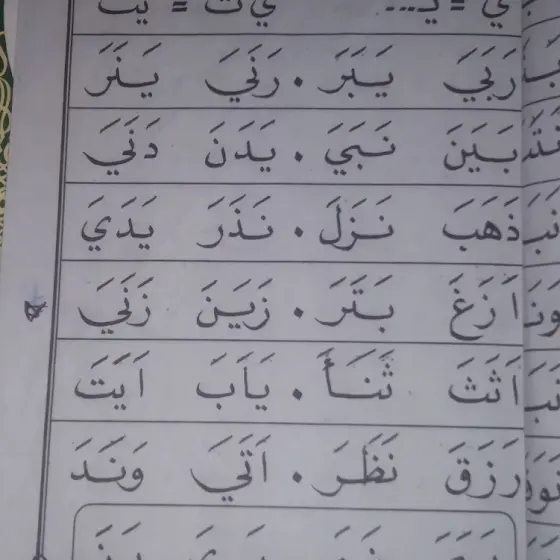 ي = يـ... ي ت = يت
رَبَيَ يَبَرَ . رَنَيَ يَنَرَ
بَيَنَ نَبَيَ . يَدَنَ دَنَيَ
ذَهَبَ نَزَلَ . نَذَرَ يَدَيَ
اَزَغَ بَتَرَ . زَيَنَ زَنَيَ
اَثَثَ ثَنَأَ . يَاَبَ اَيَتَ
رَزَقَ نَظَرَ . اَتَيَ وَنَدَ